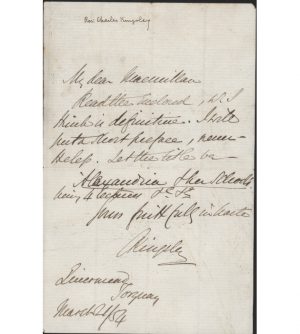 Rev Charles Kingsley
My dear Macmillan
Read the enclosed, wh I
think is definitive. I will
put a short preface, never-
theless. Let the title be—
Alexandria & her Schools
being 4 lectures &c. &c.
Yours faithfully in haste
CKingsley
Livermead
Torquay
March 21/54